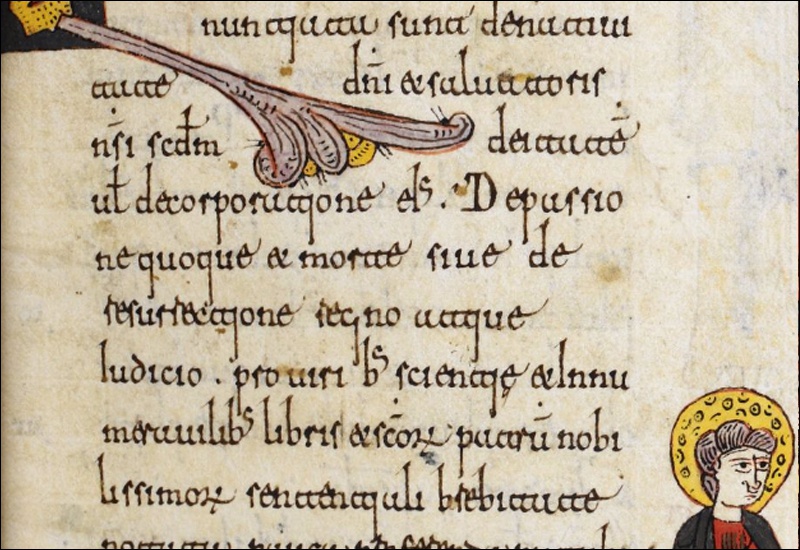 nuntiata sunt de natiui
tate dn̄i & saluatoris
nr̄i scd̄m deitatē
ul̄ de corporatione eis. De passio
ne quoque & morte siue de
resurrectione regno atque
Iudicio . pro uiri bs scientię & Innu
merauilibs libris & scōrꝝ patrū nobi
lissimorꝝ sententiali brebitate